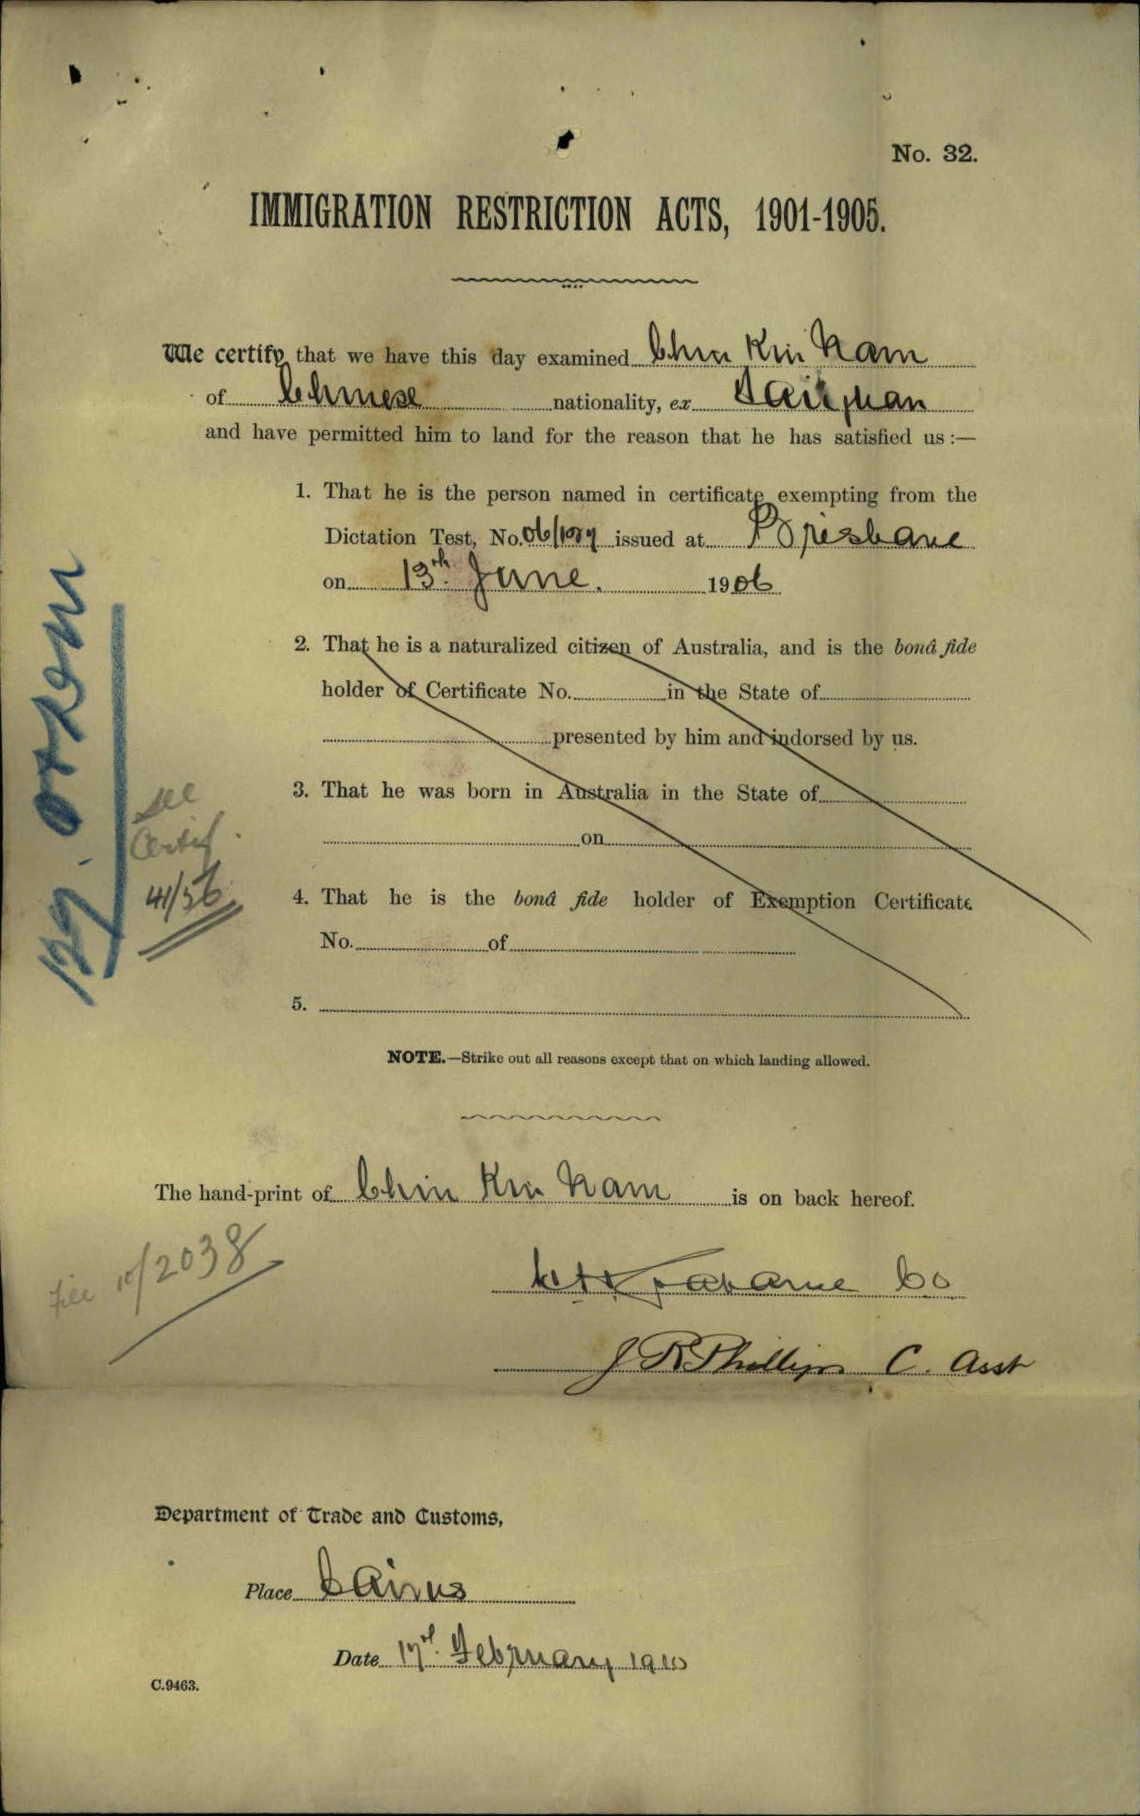 No. 32.
IMMIGRATION RESTRICTION ACTS, 1901-1905.
We certify that we have this day examined Chin Kin Nam
of Chinese nationality, ex Taiyuan
and have permitted him to land for the reason that he has satisfied us :—
1. That he is the person named in certificate exempting from the
Dictation Test, No. 06/ issued at Brisbane
on 13th June. 1906
2. That he is a naturalized citizen of Australia, and is the bonâ fide
holder of Certificate No. in the State of
presented by him and indorsed by us.
3. That he was born in Australia in the State of
on
4. That he is the bonâ fide holder of Exemption Certificate
No. of
5.
NOTE.—Strike out all reasons except that on which landing allowed.
See
Certif.
41/56
The hand-print of Chin Kin Nam is on back hereof.
File 10/2038
CO
J R Phillips C. Asst
Department of Trade and Customs,
Place Cairns
Date 17th February 1910
C.9463.